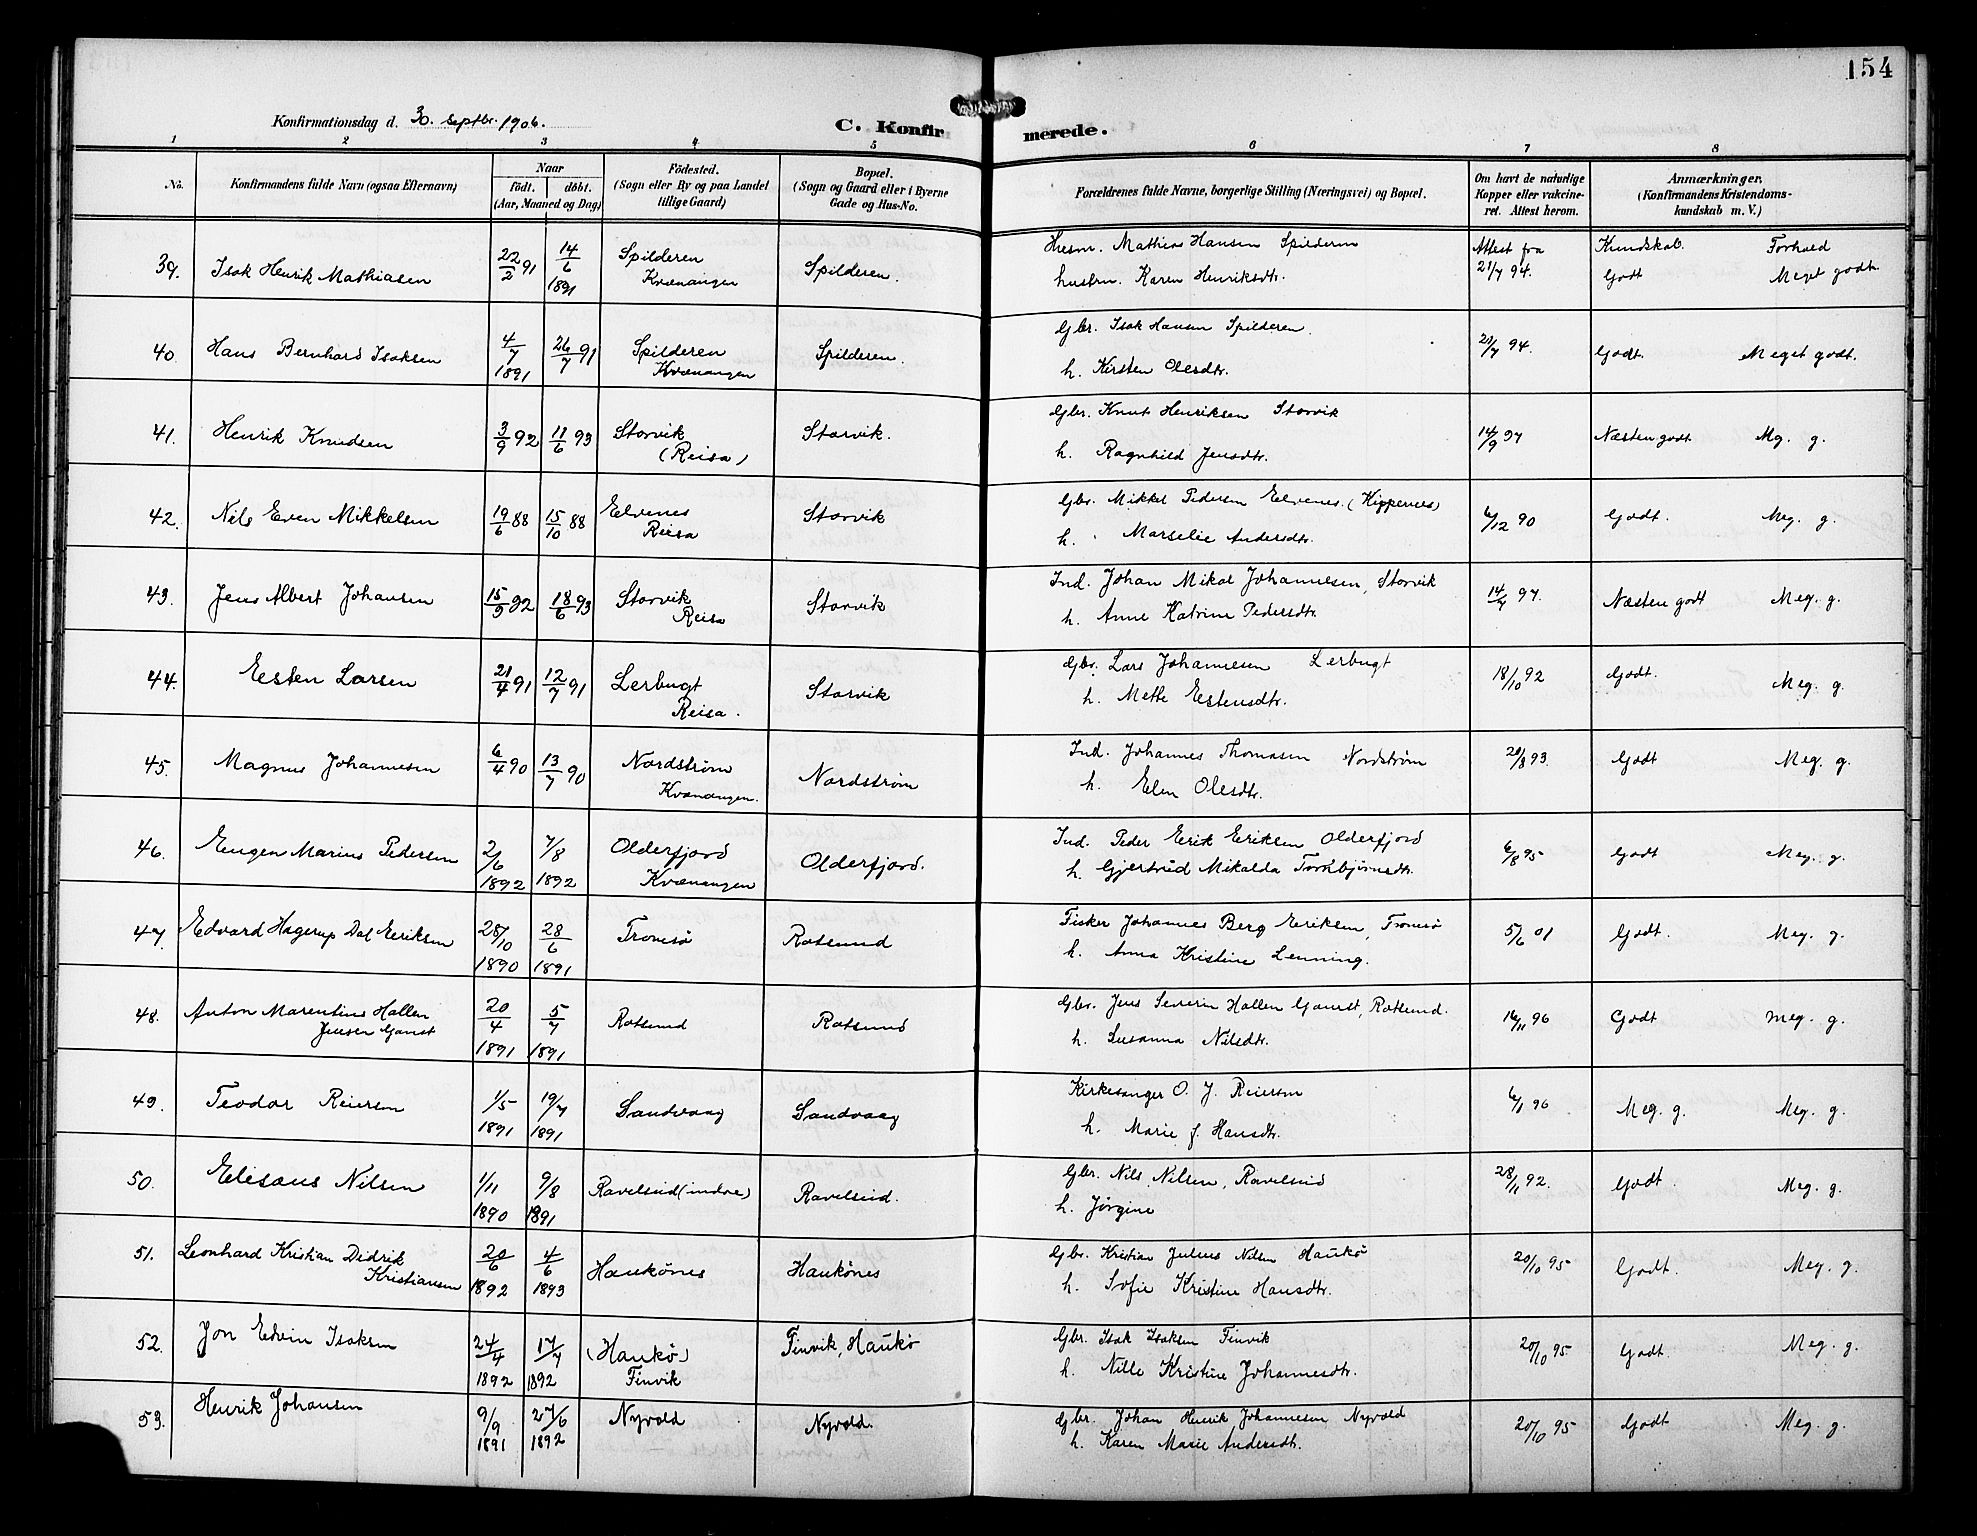 154
Konfirmationsdag d. 30. septbr. 1906.
C. Konfirmerede.
1 2 3 4 5 6 7 8
No.
Konfirmandens fulde Navn (ogsaa Efternavn)
Naar
födt. döbt.
(Aar, Maaned og Dag)
Födested.
(Sogn eller By og paa Landet
tillige Gaard)
Bopæl.
(Sogn og Gaard eller i Byerne
Gade og Hus-No.
Forældrenes fulde Navne, borgerlige Stilling (Næringsvei) og Bopæl.
Om havt de naturlige
Kopper eller vakcine-
ret. Attest herom.
Anmærkninger,
(Konfirmandens Kristendoms-
kundskab m. V.)
39. Isak Henrik Mathiasen 22/2 91 14/6 1891 Spilderen Kvænangen Spilderen.
Husm. Mathias Hansen Spilderen
hustru. Karen Henriksdtr.
Attest fra 21/7 94. Kundskab. Godt Forhold Meget godt.
40. Hans Bernhard Isaksen 4/7 1891 26/7 91 Spilderen Kvænangen Spilderen.
Gbr. Isak Hansen Spilderen.
h. Kirsten Olesdtr.
21/7 94. Godt. Meget godt.
41. Henrik Knudsen 3/9 92 11/6 93 Storvik (Reisa) Storvik.
Gbr. Knut Henriksen Storvik
h. Ragnhild Jensdtr.
14/9 97 Næsten godt Mg. g.
42. Nils Even Mikkelsen 19/6 88 15/10 88 Elvenes Reisa Storvik
Gbr. Mikkel Pedersen Elvenes. (Kippernes)
h. Marselie Andersdtr.
6/12 90 Godt. Meg. g.
43. Jens Albert Johansen 15/9 92 18/6 93 Storvik Reisa Storvik
Ind. Johan Mikal Johannesen, Storvik
h. Anne Katrine Pedersdtr.
14/9 97. Næsten godt Meg. g.
44. Esten Larsen 21/4 91 12/7 91 Lerbugt Reisa. Storvik
Gbr. Lars Johannesen Lerbugt
h. Mette Estensdtr.
18/10 92 Godt. Meg. g.
45. Magnus Johannesen 6/4 90 13/7 90 Nordstrøm Kvænangen. Nordstrøm
Ind. Johannes Thomasen Nordstrøm
h. Elen Olesdtr.
20/8 93. Godt Meg. g.
46. Eugen Marius Pedersen 2/6 1892 7/8 1892 Olderfjord Kvænangen Olderfjord.
Ind. Peder Erik Eriksen Olderfjord
h. Gjertrud Mikalda Torkbjørnsdtr.
6/8 95 Godt Meg. g.
47. Edvard Hagerup Dal Eriksen 28/10 1890 28/6 1891 Tromsø Rotsund
Fisker Johannes Berg Eriksen, Tromsø
h. Anna Kristine Lenning.
5/6 01 Godt. Meg. g.
48. Anton Marentius Hallen
Jensen Gamst 20/4 1891 5/7 1891 Rotsund Rotsund
Gbr. Jens Severin Hallen Gamst, Rotsund.
h. Susanna Nilsdtr.
16/11 96 Godt Meg. g.
49. Teodor Reiersen 1/5 1891 19/7 1891 Sandvaag Sandvaag
Kirkesanger O. J. Reiersen
h. Marie f. Hansdtr.
6/1 96 Meg. g. Meg. g.
50. Elisæus Nilsen 1/11 1890 9/8 1891 Ravelseid (indre) Ravelseid.
Gbr. Nils Nilsen, Ravelseid
h. Jørgine
28/11 92. Godt. Meg. g.
51. Leonhard Kristian Didrik
Kristiansen 20/6 1892 4/6 1893 Haukønes Haukönes
Gbr. Kristian Julius Nilsen Haukø
h. Sofie Kristine Hansdtr.
20/10 95 Godt. Meg. g.
52. Jon Edvin Isaksen 24/4 1892 17/7 1892 (Haukø) Finvik Finvik, Haukø
Gbr. Isak Isaksen Finvik
h. Nille Kristine Johannesdtr.
20/10 95 Godt. Meg. g.
53. Henrik Johansen 9/9 1891 27/6 1892 Nyvold Nyvold.
Gbr. Johan Henrik Johannesen Nyvold
h. Karen Marie Andersdtr.
20/10 95 Godt Meg. g.